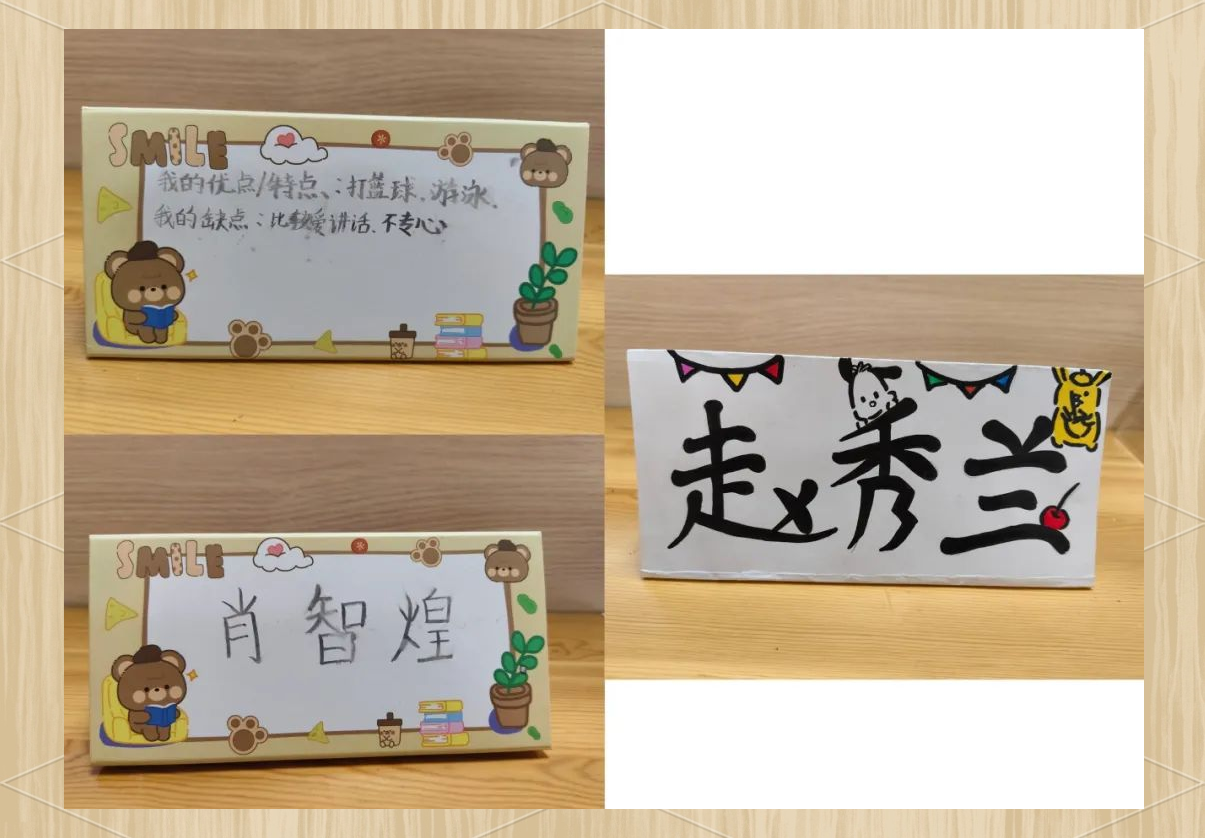 SMILE
我的优点/特点、:打蓝球.游泳.
我的缺点:比较爱讲话.不专心
SMILE
肖智煌
赵秀兰